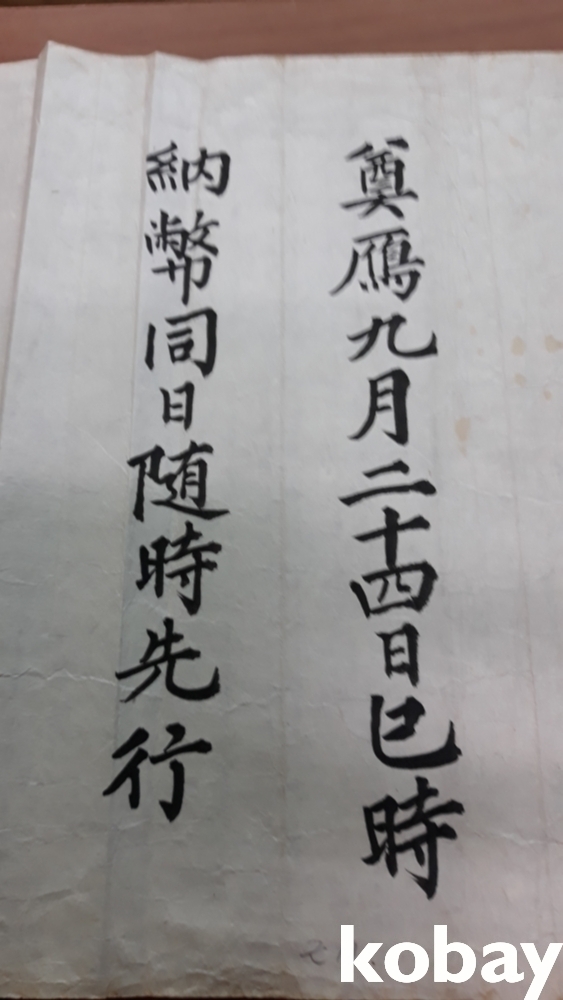 奠鴈九月二十四日巳時
納幣同日随時先行
kobay